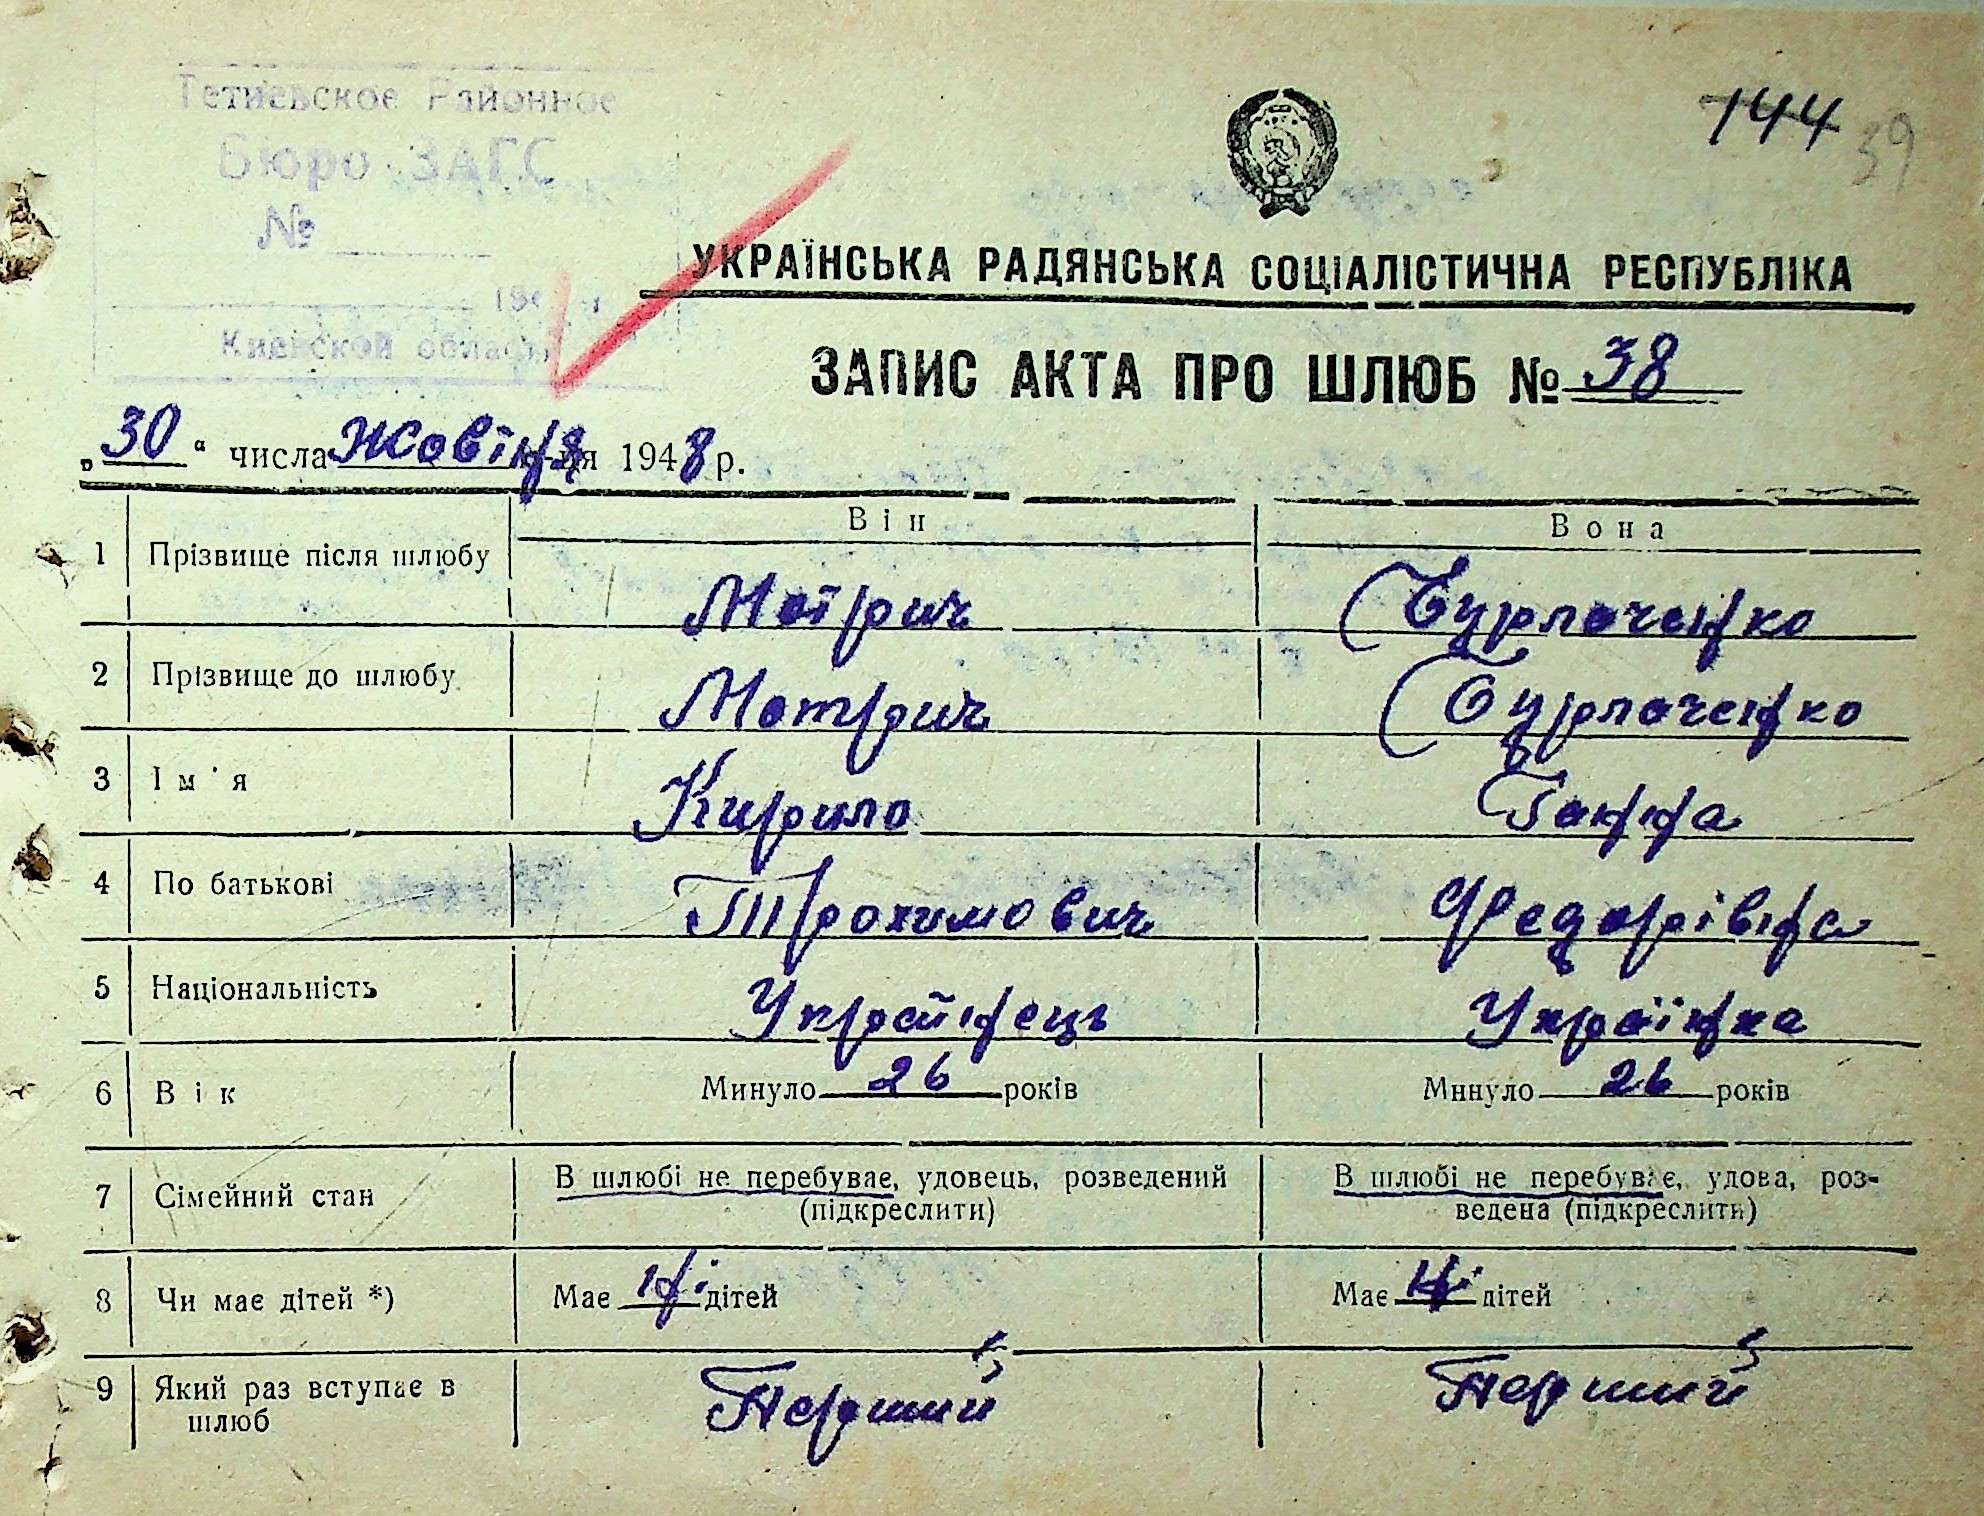 Тетиевское Районное
Бюро ЗАГС
№
194 г.
Киевской области
144 39
УКРАЇНСЬКА РАДЯНСЬКА СОЦІАЛІСТИЧНА РЕСПУБЛІКА
ЗАПИС АКТА ПРО ШЛЮБ № 38
„30“ числа Жовтня 1948 р.
Він Вона
1 Прізвище після шлюбу Мотрич Бурлаченко
2 Прізвище до шлюбу Мотрич Бурлаченко
3 Ім'я Кирило Ганна
4 По батькові Трохимович Федорівна
5 Національність Українець Українка
6 Вік Минуло 26 років Минуло 26 років
7 Сімейний стан В шлюбі не перебуває, удовець, розведений (підкреслити) В шлюбі не перебуває, удова, роз-
ведена (підкреслити)
8 Чи має дітей *) Має ні дітей Має ні дітей
9 Який раз вступає в Перший Перший
шлюб